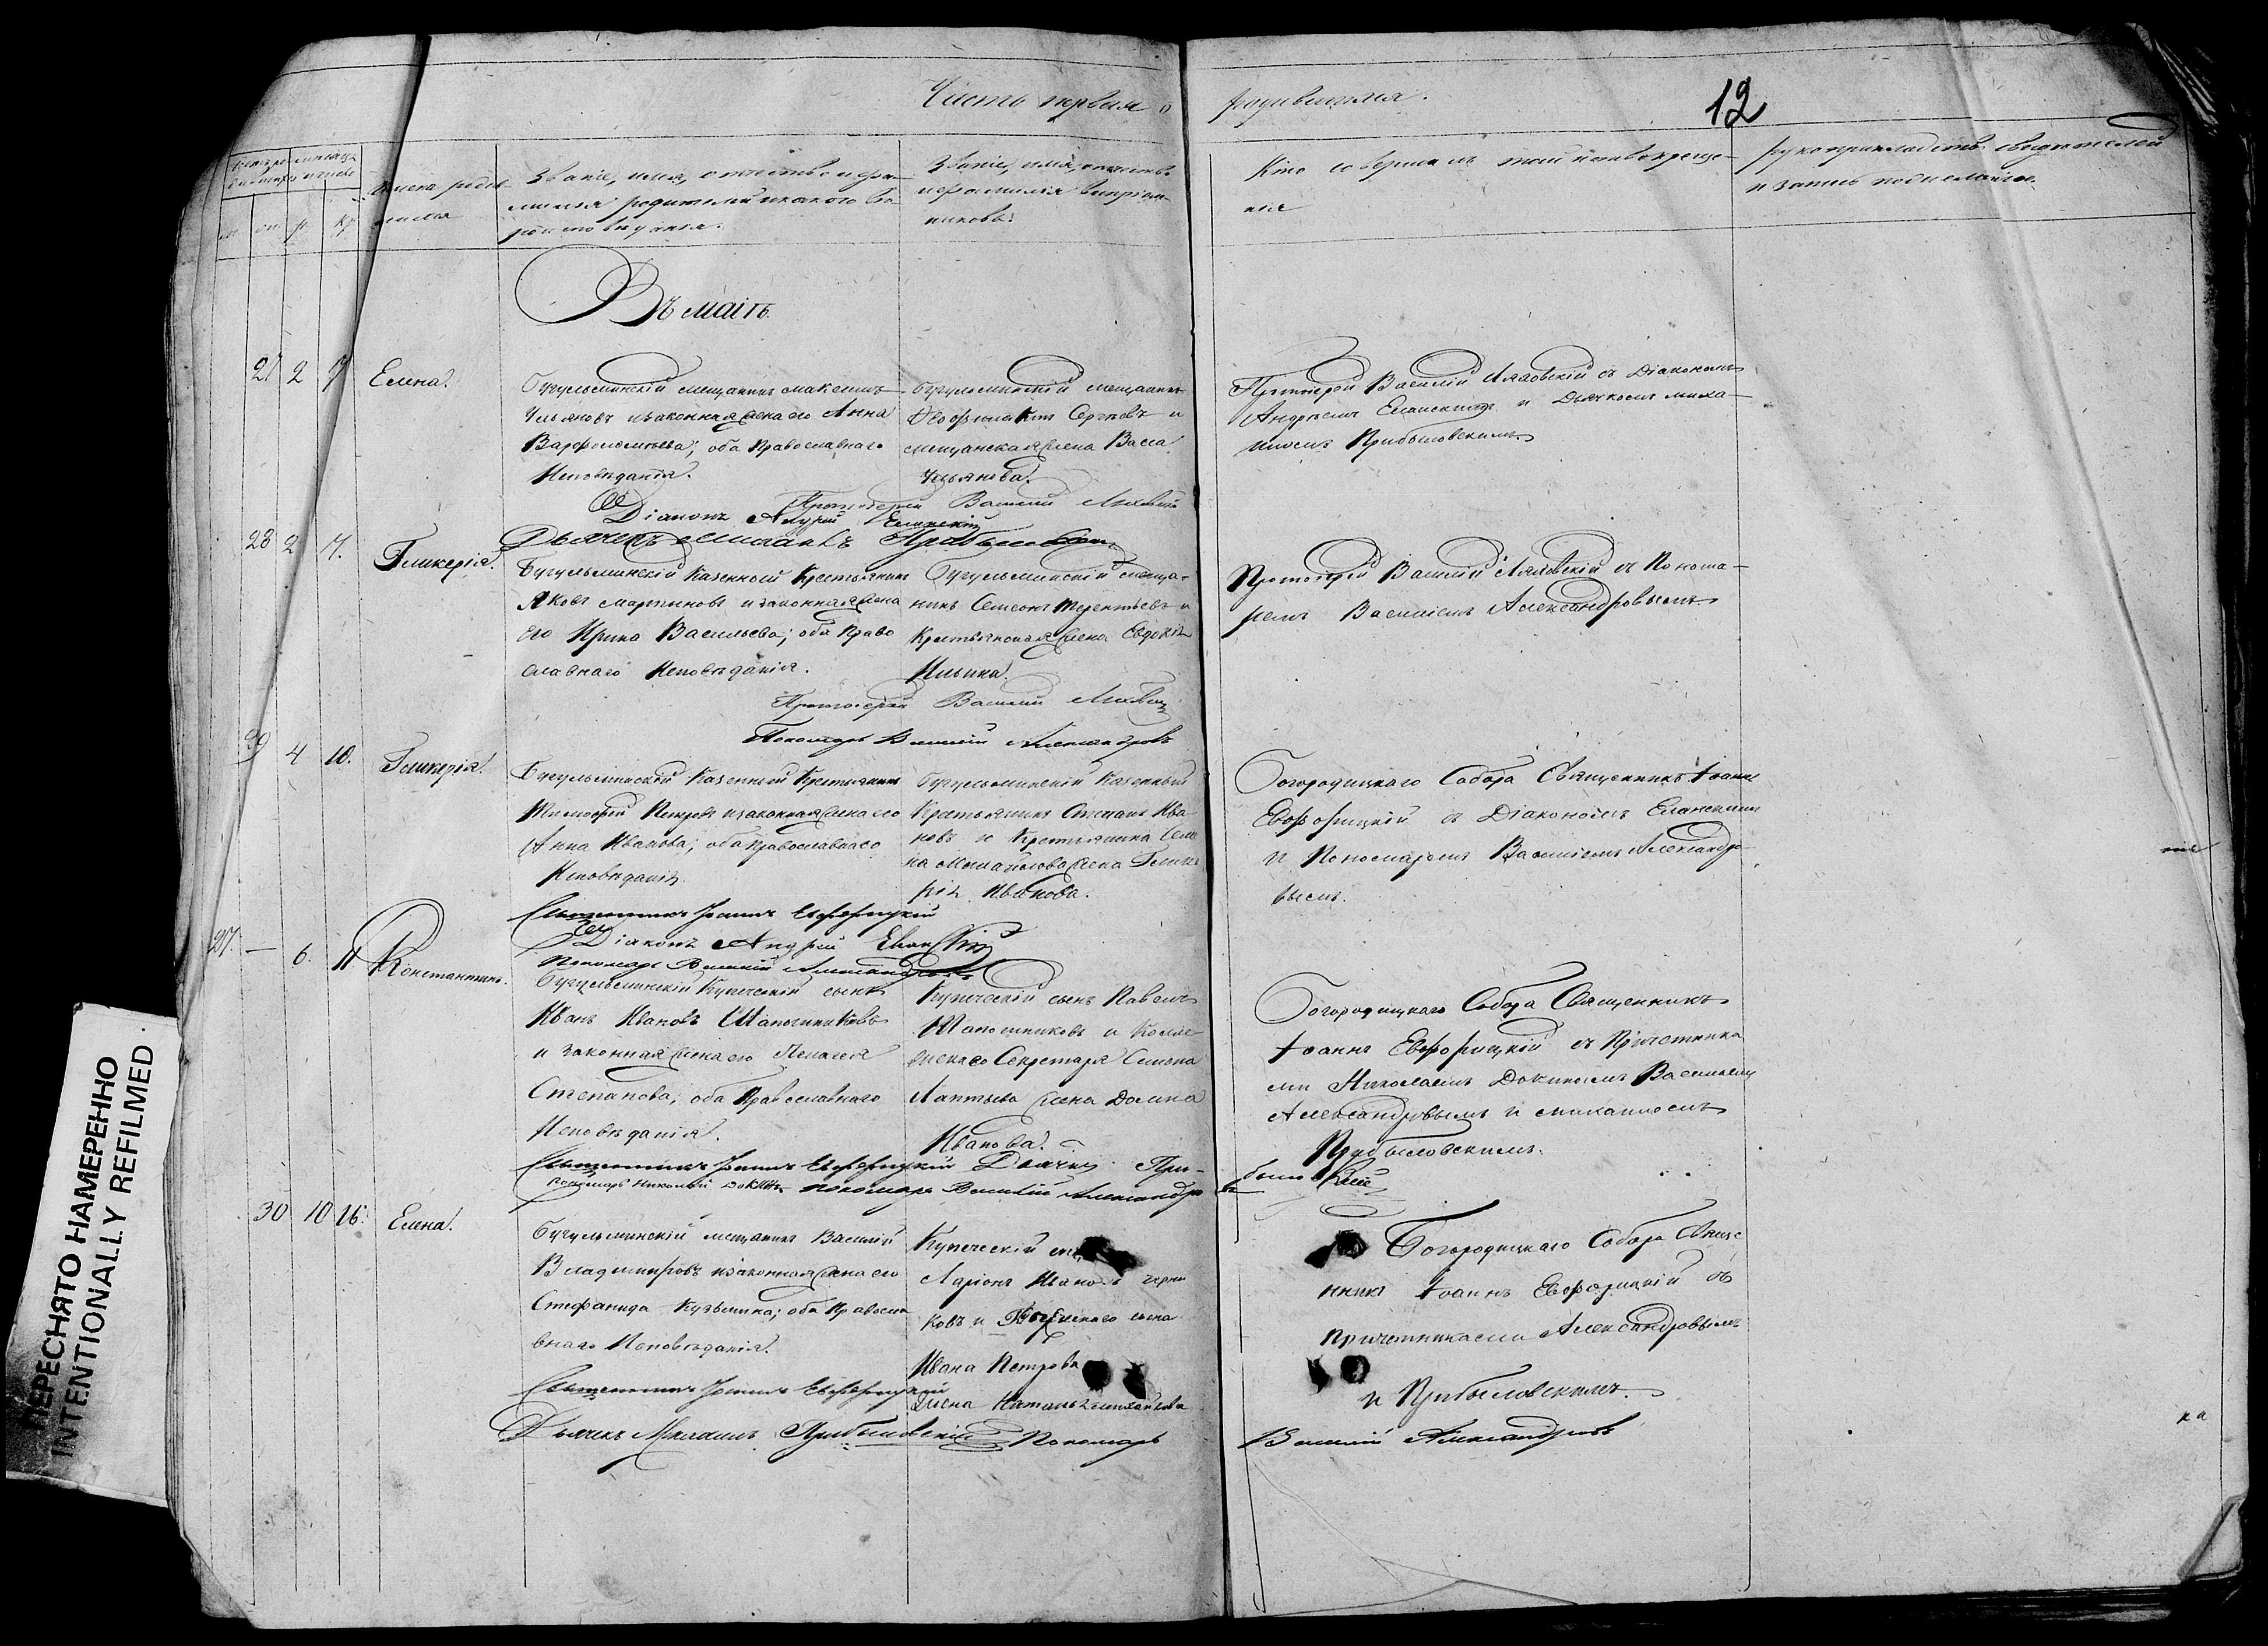 Часть первая о
родившихся.
12
Счетъ родившихся
Месяцъ и день
м. ж. р. кр.
Имена родившихся
Званіе, имя, отчество и фа-
милія родителей и какого ве-
роисповеданія.
Званіе, имя, отчество
и фамилія воспріем-
никовъ.
Кто совершалъ таинство креще-
нія
Рукоприкладство свидетелей
записи по желанію.
Въ маіѣ.
27 2 7 Елена.
Бугульминскій мещанинъ Максимъ
Ульяновъ и законная жена его Анна
Варфоломѣева, оба Православнаго
Исповѣданія.
Бугульминскій мещанинъ
Ѳеофилактъ Сергѣевъ и
мещанская жена Васса
Ульянова.
Протоіерей Василій Лядовскій съ Діакономъ
Андреемъ Еланскимъ и Дьячкомъ Миха-
иломъ Прибыловскимъ.
Протоіерей Василій
Діаконъ Андрей Еланскій
Дьячекъ Михаилъ Прибыловскій
28 2 7. Гликерія.
Бугульминскій Казенный Крестьянинъ
Яковъ Мартыновъ и законная жена
его Ирина Васильева; оба Право
славнаго Исповѣданія.
Бугульминскій меща-
нинъ Семенъ Терентьевъ и
Крестьянская жена Евдокія
Ильина.
Протоіерей Василій Лядовскій съ Понома-
ремъ Василіемъ Александровымъ.
Протоіерей Василій
Пономарь Василій Александровъ
29 4 10. Гликерія.
Бугульминской Казенный Крестьянинъ
Тимофей Петровъ и законная жена его
Анна Иванова; оба Православнаго
Исповѣданія.
Бугульминскій Казенный
Крестьянинъ Степанъ Ива
новъ и Крестьянина Семе
на Михайлова жена Глике
рія Иванова.
Богородицкаго Собора Священникъ Іоаннъ
Евфорицкій съ Діакономъ Еланскимъ
и Пономаремъ Василіемъ Александро-
вымъ.
Священникъ Іоаннъ Евфорицкій
Діаконъ Андрей Еланскій
Пономарь Василій Александровъ
27. — 6. 11 Константинъ.
Бугульминскій Купеческій сынъ
Иванъ Ивановъ Шапошниковъ
и законная жена его Пелагея
Степанова, оба Православнаго
Исповѣданія.
Купеческій сынъ Павелъ
Шапошниковъ и Колле
жскаго Секретаря Семена
Лаптева жена Домна
Иванова.
Богородицкаго Собора Священникъ
Іоаннъ Евфорицкій съ Причетника
ми Николаемъ Докинымъ Василіемъ
Александровымъ и Михаиломъ
Прибыловскимъ.
Священникъ Іоаннъ Евфорицкій Дьячекъ При-
быловскій
Пономарь Николай Докинъ Пономарь Василій Александровъ
30 10 16. Елена.
Бугульминскій мещанинъ Василій
Владимировъ и законная жена его
Стефанида Кузьмина; оба Правосла
внаго Исповѣданія.
Купеческій
Ларіонъ Ивановъ
ковъ и сына
Ивана Петрова
жена Наталья Михайлова
Богородицкаго Собора Свяще
нникъ Іоаннъ Евфорицкій съ
причетниками Александровымъ
и Прибыловскимъ.
Священникъ Іоаннъ Евфорицкій
Дьячекъ Михаилъ Прибыловскій Пономарь
Василій Александровъ
ПЕРЕСНЯТО НАМЕРЕННО
INTENTIONALLY REFILMED